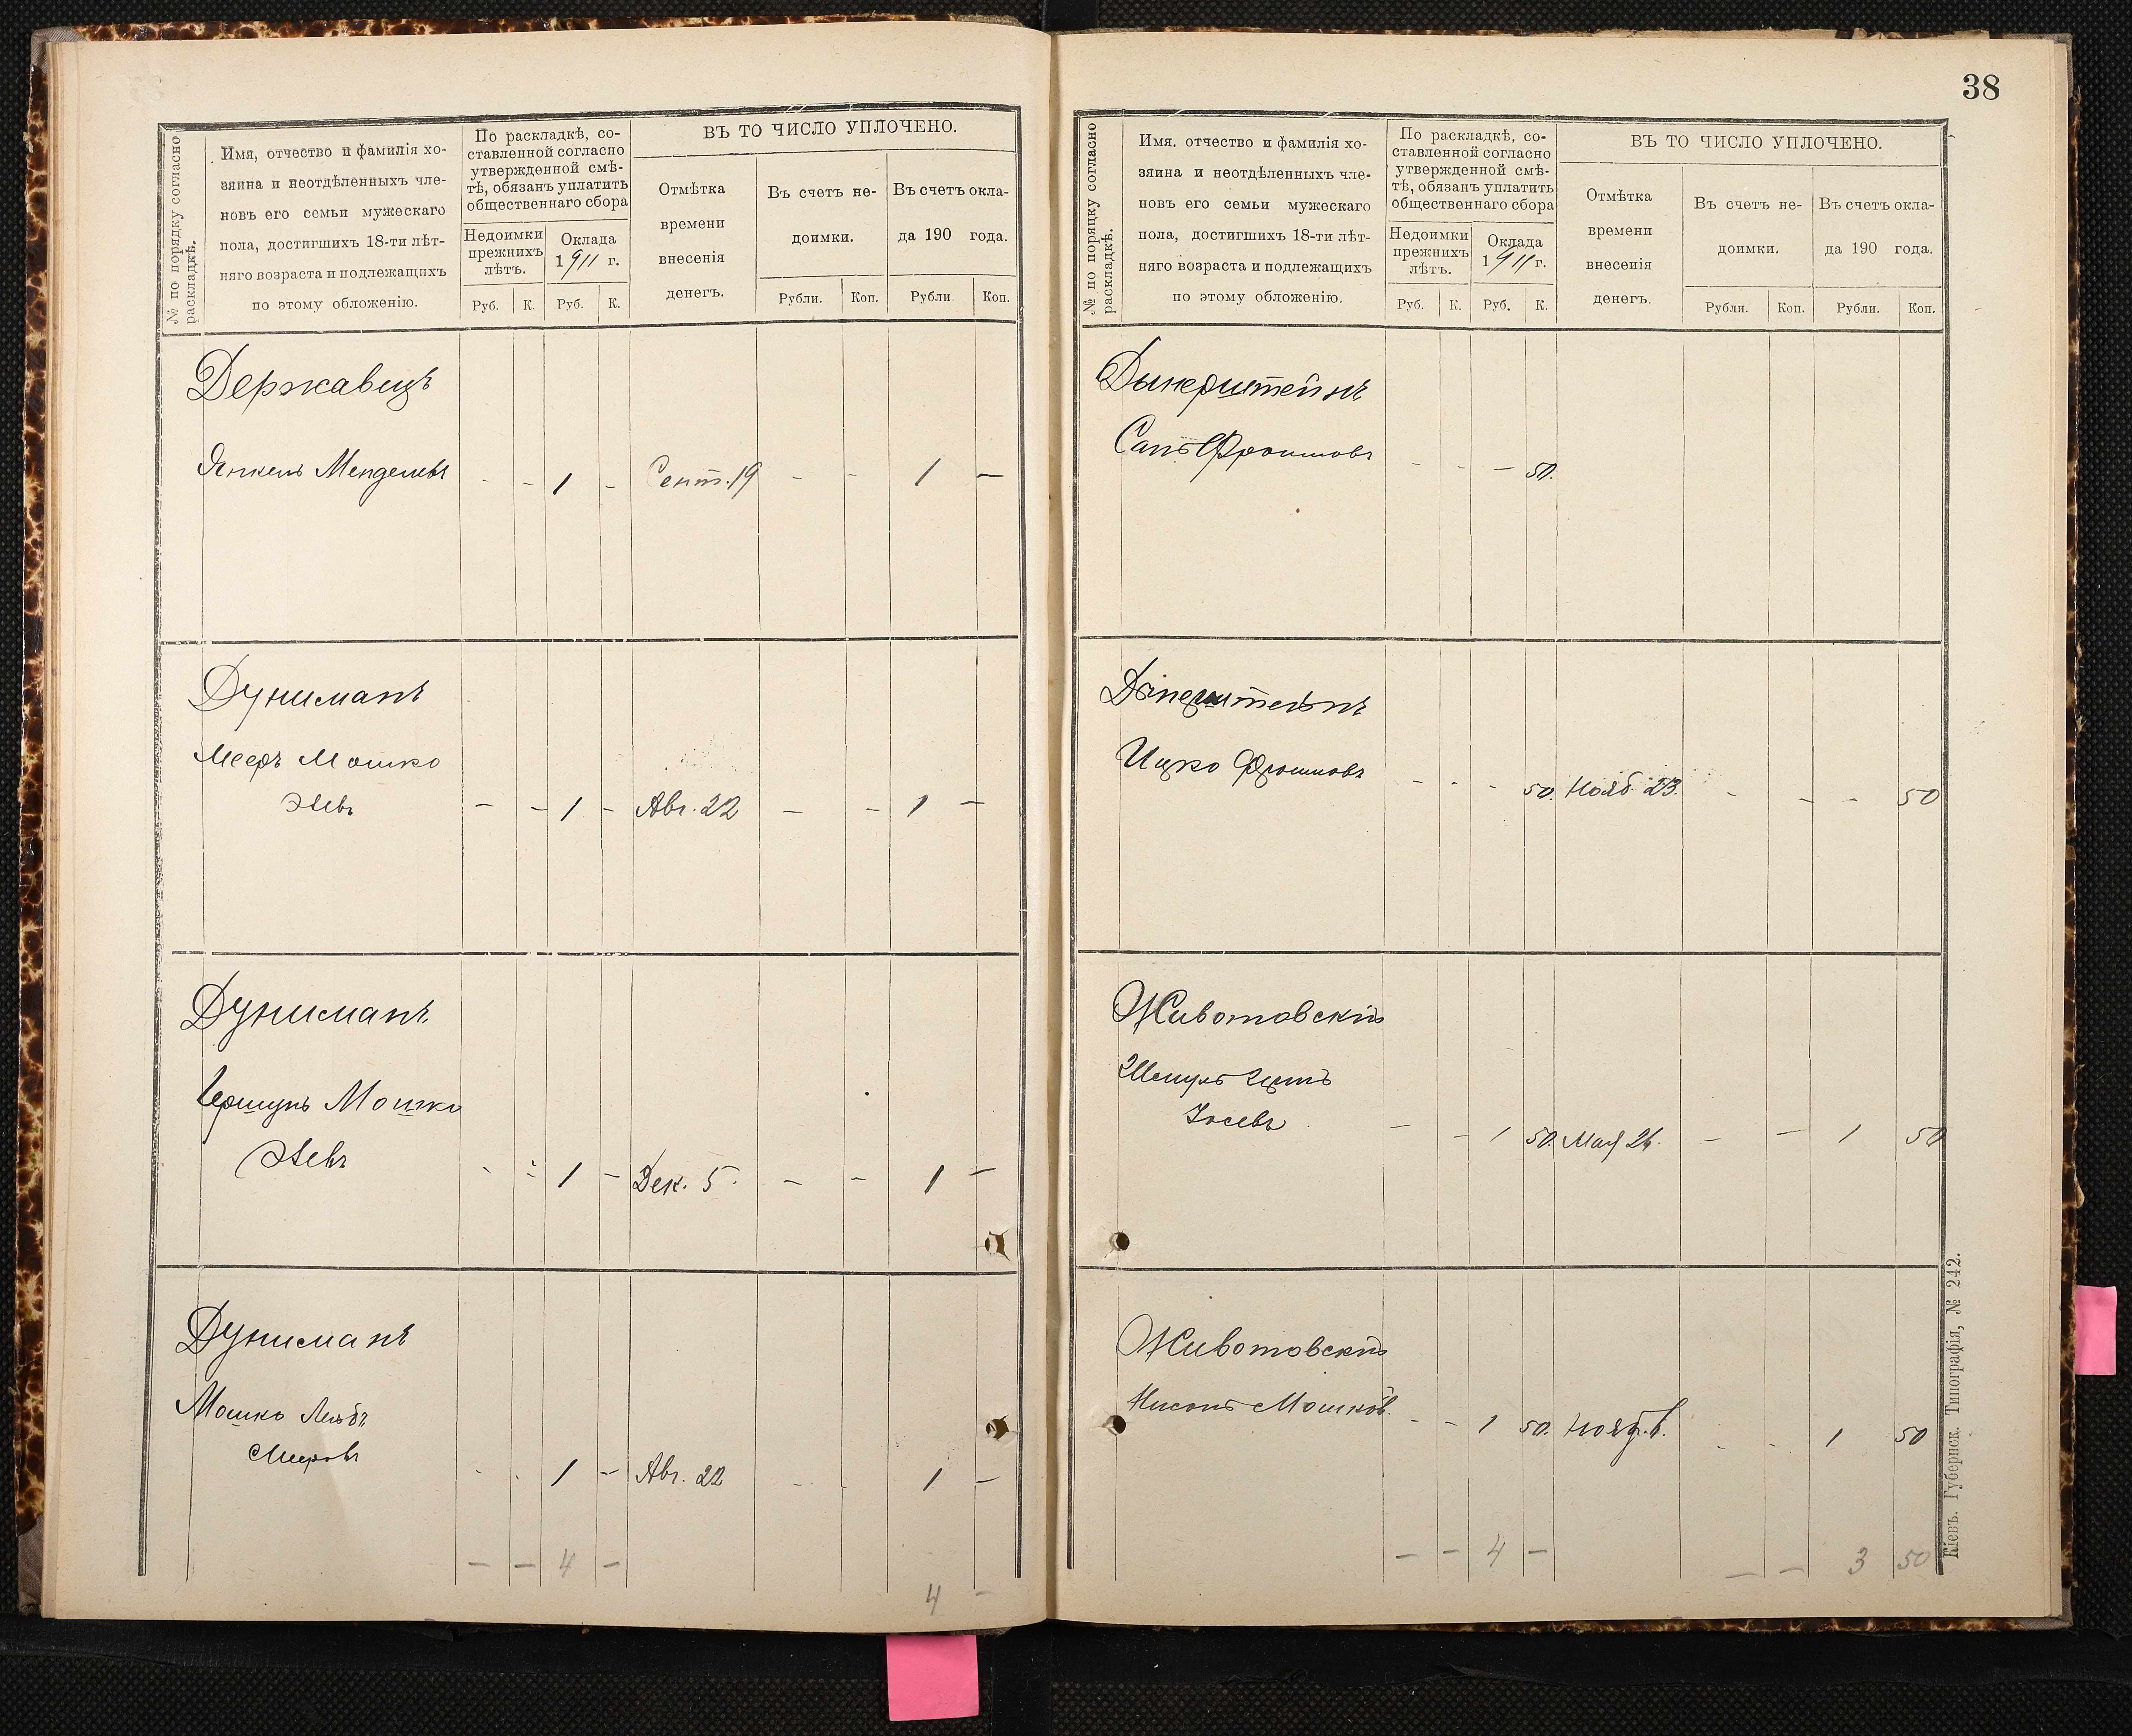 № по порядку согласно раскладкѣ.
Имя, отчество и фамилія хо-
зяина и неотдѣленныхъ чле-
новъ его семьи мужескаго
пола, достигшихъ 18-ти лѣт-
няго возраста и подлежащихъ
по этому обложенію.
По раскладкѣ, со-
ставленной согласно
утвержденной смѣ-
тѣ, обязанъ уплатить
общественнаго сбора
Недоимки
прежнихъ
лѣтъ.
Оклада
1911 г.
Руб. К. Руб. К.
ВЪ ТО ЧИСЛО УПЛОЧЕНО.
Отмѣтка
времени
внесенія
денегъ.
Въ счетъ не-
доимки.
Въ счетъ окла-
да 190 года.
Рубли. Коп. Рубли. Коп.
Державецъ
Янкель Менделевъ - - 1 - Сент. 19 - - 1 -
Дунисманъ
Мееръ Мошко
Элевъ - - 1 - Авг. 22 - - 1 -
Дунисманъ
Гершунъ Мошко
Элевъ - - 1 - Дек. 5. - - 1 -
Дунисманъ
Мошко Лейбъ
Мееровъ - - 1 - Авг. 22 - - 1 -
- - 4 -
4 -
38
№ по порядку согласно раскладкѣ.
Имя. отчество и фамилія хо-
зяина и неотдѣленныхъ чле-
новъ его семьи мужескаго
пола, достигшихъ 18-ти лѣт-
няго возраста и подлежащихъ
по этому обложенію.
По раскладкѣ, со-
ставленной согласно
утвержденной смѣ-
тѣ, обязанъ уплатить
общественнаго сбора
Недоимки
прежнихъ
лѣтъ.
Оклада
1911 г.
Руб. К. Руб. К.
ВЪ ТО ЧИСЛО УПЛОЧЕНО.
Отмѣтка
времени
внесенія
денегъ.
Въ счетъ не-
доимки.
Въ счетъ окла-
да 190 года.
Рубли. Коп. Рубли. Коп.
Дынерштейнъ
- - - 50.
Дынерштейнъ
Ицко Фроимовъ - - - 50. Нояб. 23. - - - 50
Животовскій
Шмуль
Іосевъ - - 1 50. Мая 26. - - 1 50
Животовскій
Нисонъ Мошков. - - 1 50. Нояб. - - 1 50
- - 4 - - - 3 50
Кіевъ. Губернск. Типографія, № 242.